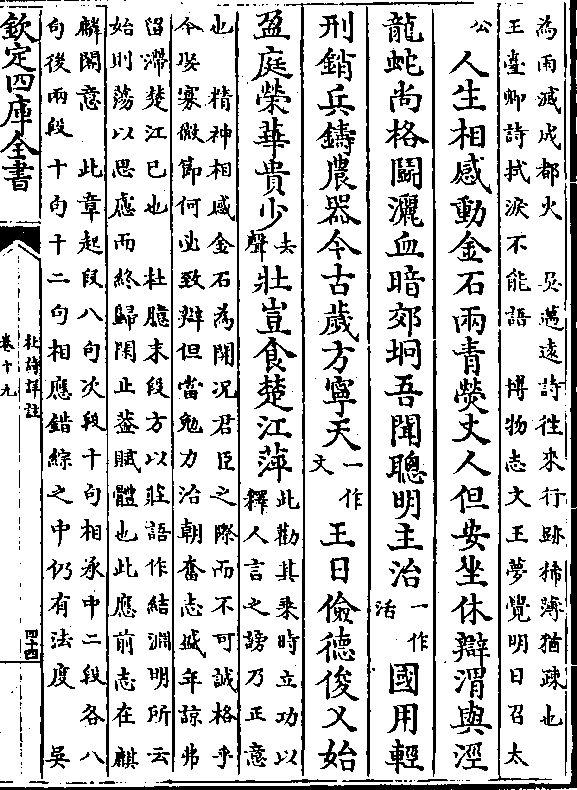 為雨滅成都火　吳邁遠詩徃來行跡稀薄猶疎也
王臺卿詩拭淚不能語　博物志文王夢覺明日召太
公　人生相感動金石兩青熒丈人但安坐休辯渭與涇
龍蛇尚格鬭灑血暗郊坰吾聞聰明主治一作活國用輕
刑銷兵鑄農器今古歲方寧天一作文王日儉德俊乂始
盈庭榮華貴少去聲壯豈食楚江萍此勸其乘時立功以
釋人言之謗乃正意
也　精神相感金石為開况君臣之際而不可誠格乎
今娶寡微節何必致辯但當勉力治朝奮志盛年諒弗
留滯楚江已也　杜臆末段方以莊語作結淵明所云
始則蕩以思慮而終歸閑止葢賦體也此應前志在麒
麟閣意　此章起段八句次段十句相承中二段各八
句後兩段十句十二句相應錯綜之中仍有法度　吳
欽定四庫全書
杜詩詳註
卷十九
四十四